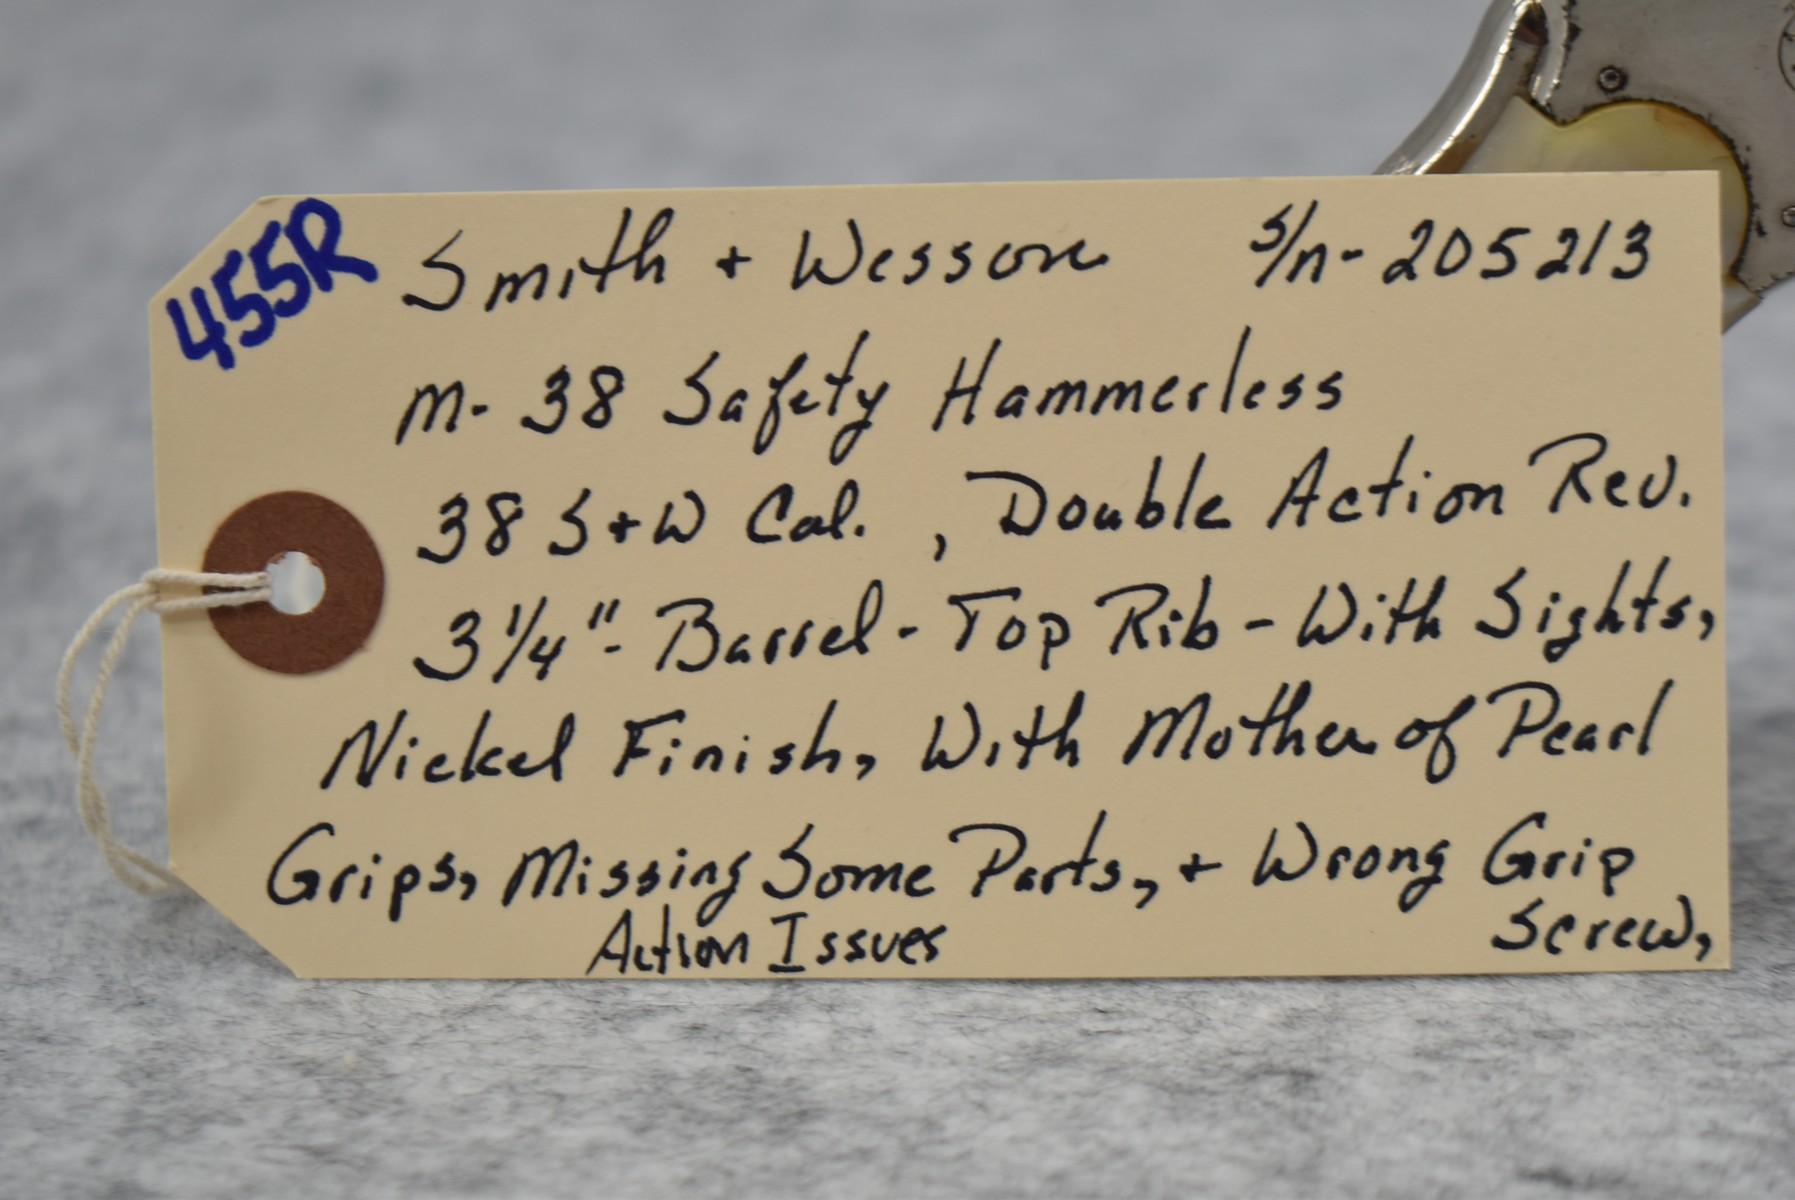 455R
Smith + Wesson S/n- 205213
M- 38 Safety Hammerless
38 S+W Cal. , Double Action Rev.
3 1/4"- Barrel - Top Rib - With Sights,
Nickel Finish, With Mother of Pearl
Grips, Missing Some Parts, + Wrong Grip
Screw,
Action Issues